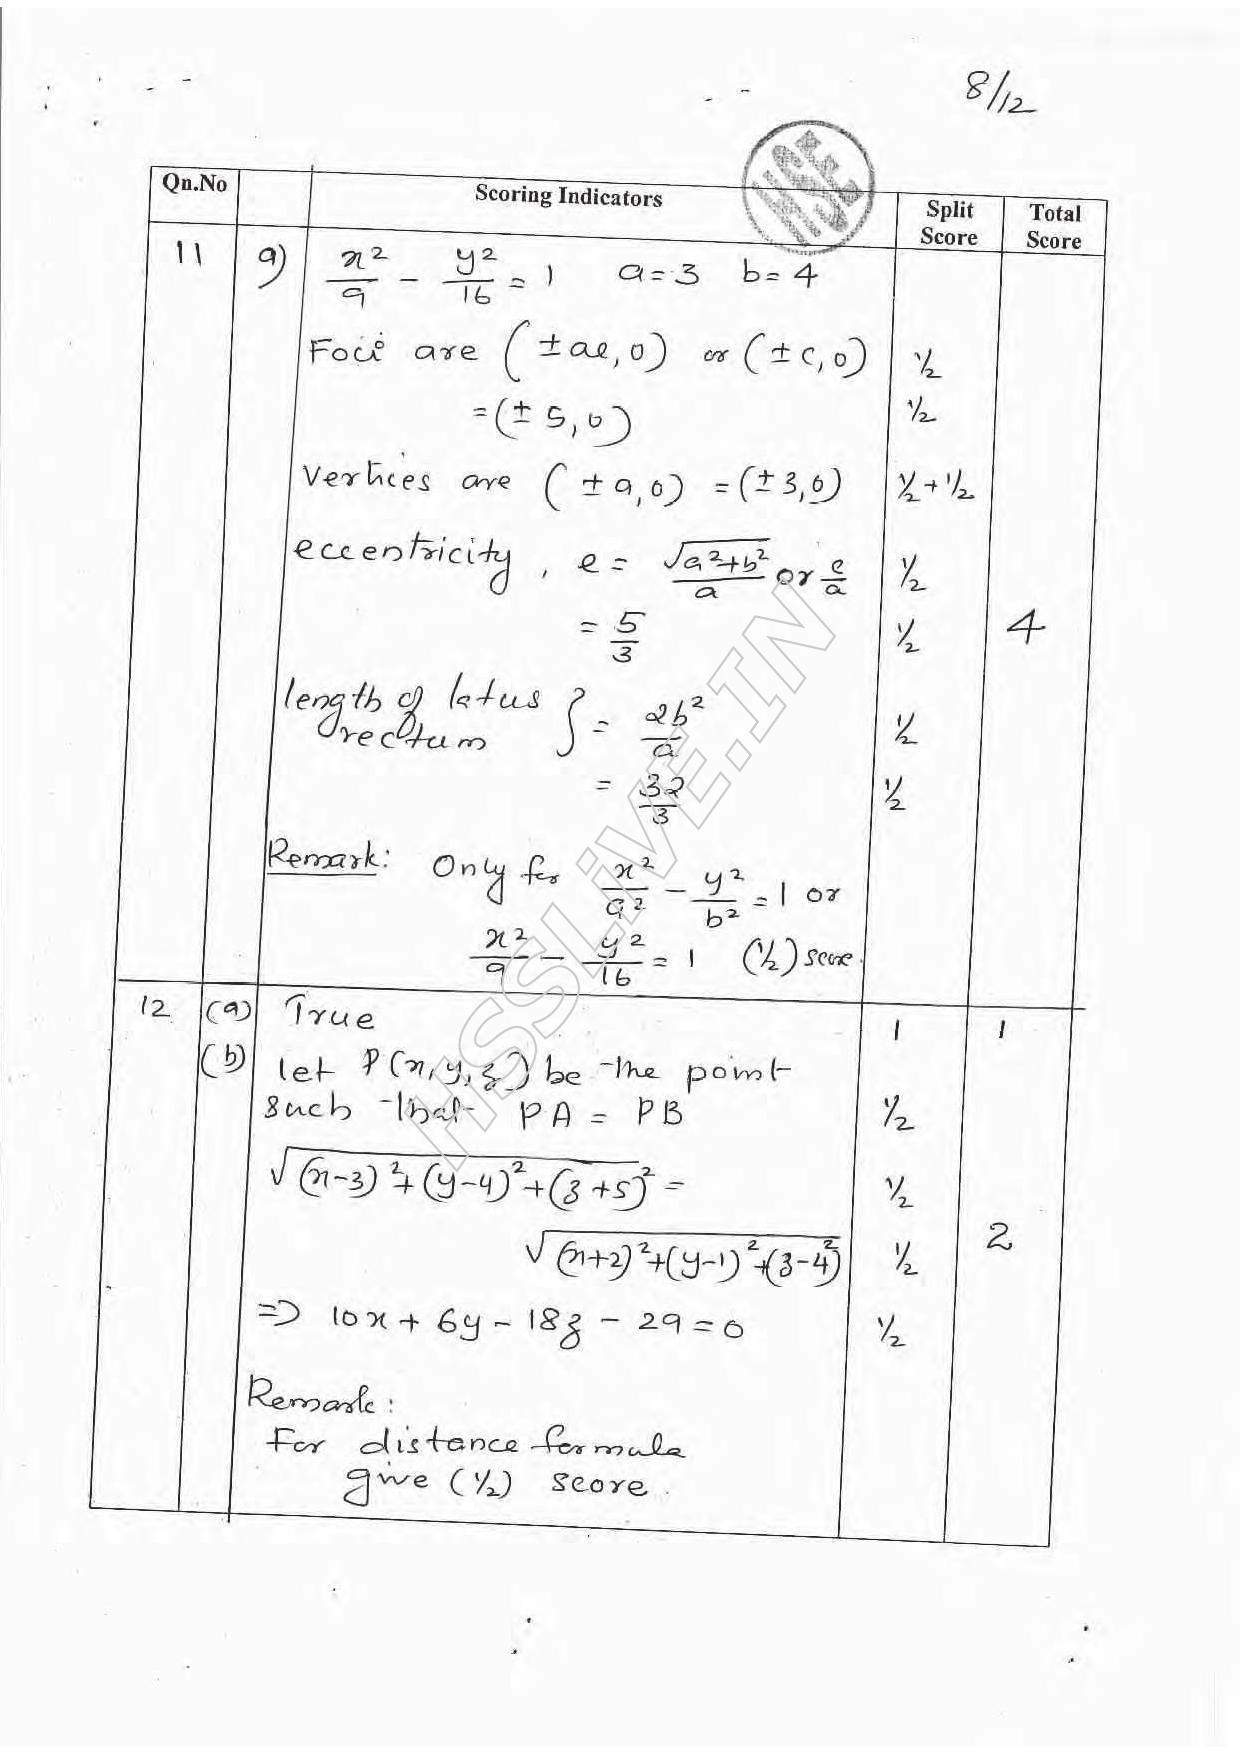 8/12
Qn.No Scoring Indicators Split Score Total Score
11 a) x²/9 - y²/16 = 1 a = 3 b = 4
Foci are (±ae, 0) or (±c, 0) ½
= (± 5, 0) ½
Vertices are (± a, 0) = (± 3, 0) ½ + ½
eccentricity, e = √(a²+b²)/a or c/a ½
= 5/3 ½ 4
length of latus rectum } = 2b²/a ½
= 32/3 ½
Remark: Only for x²/a² - y²/b² = 1 or
x²/9 - y²/16 = 1 (½) score.
12 (a) True 1 1
(b) let P(x, y, z) be the point
such that PA = PB ½
√(x-3)²+(y-4)²+(z+5)² = ½
√(x+2)²+(y-1)²+(z-4)² ½ 2
=> 10x + 6y - 18z - 29 = 0 ½
Remark:
For distance formula
give (½) score.
HSSLiVE.IN